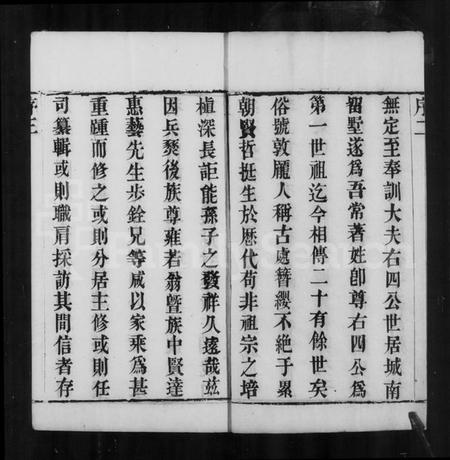 序二
無定至奉訓大夫右四公世居城南
留墅遂爲吾常著姓卽尊右四公爲
第一世祖迄今相傳二十有餘世矣
俗號敦龐人稱古處簪纓不絶于累
朝賢哲挺生於歷代苟非祖宗之培
植深長詎能孫子之發祥久遠哉茲
因兵燹後族尊雍若翁曁族中賢達
惠藝先生步銓兄等咸以家乘爲甚
重踵而修之或則分居主修或則任
司纂輯或則職肩採訪其間信者存
序三